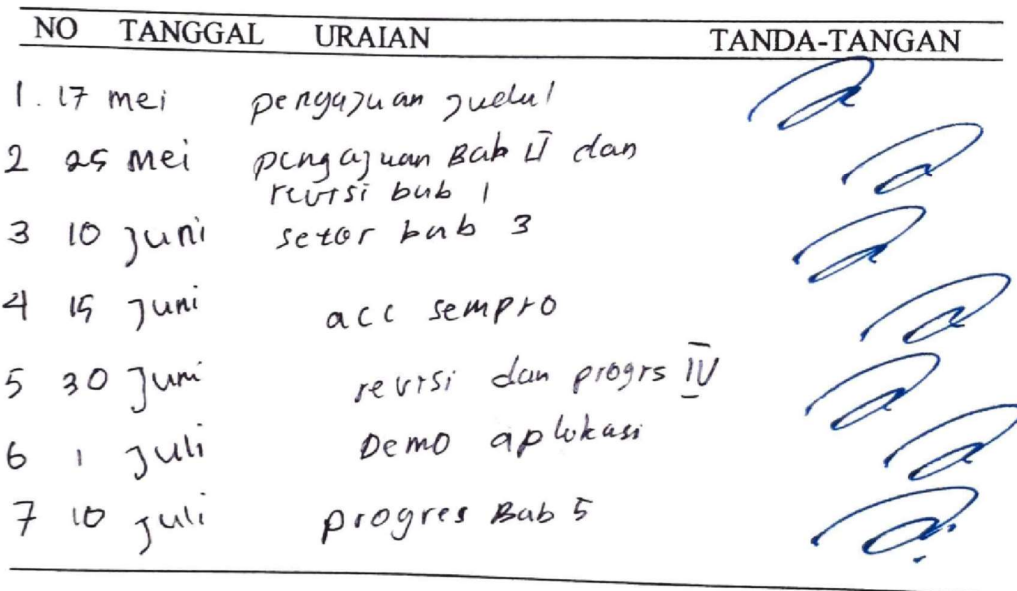 NO TANGGAL URAIAN TANDA-TANGAN
1. 17 mei pengajuan judul
2 25 mei pengajuan Bab II dan
revisi bab 1
3 10 juni setor bab 3
4 15 juni acc sempro
5 30 juni revisi dan progrs IV
6 1 juli Demo aplikasi
7 10 juli progres Bab 5